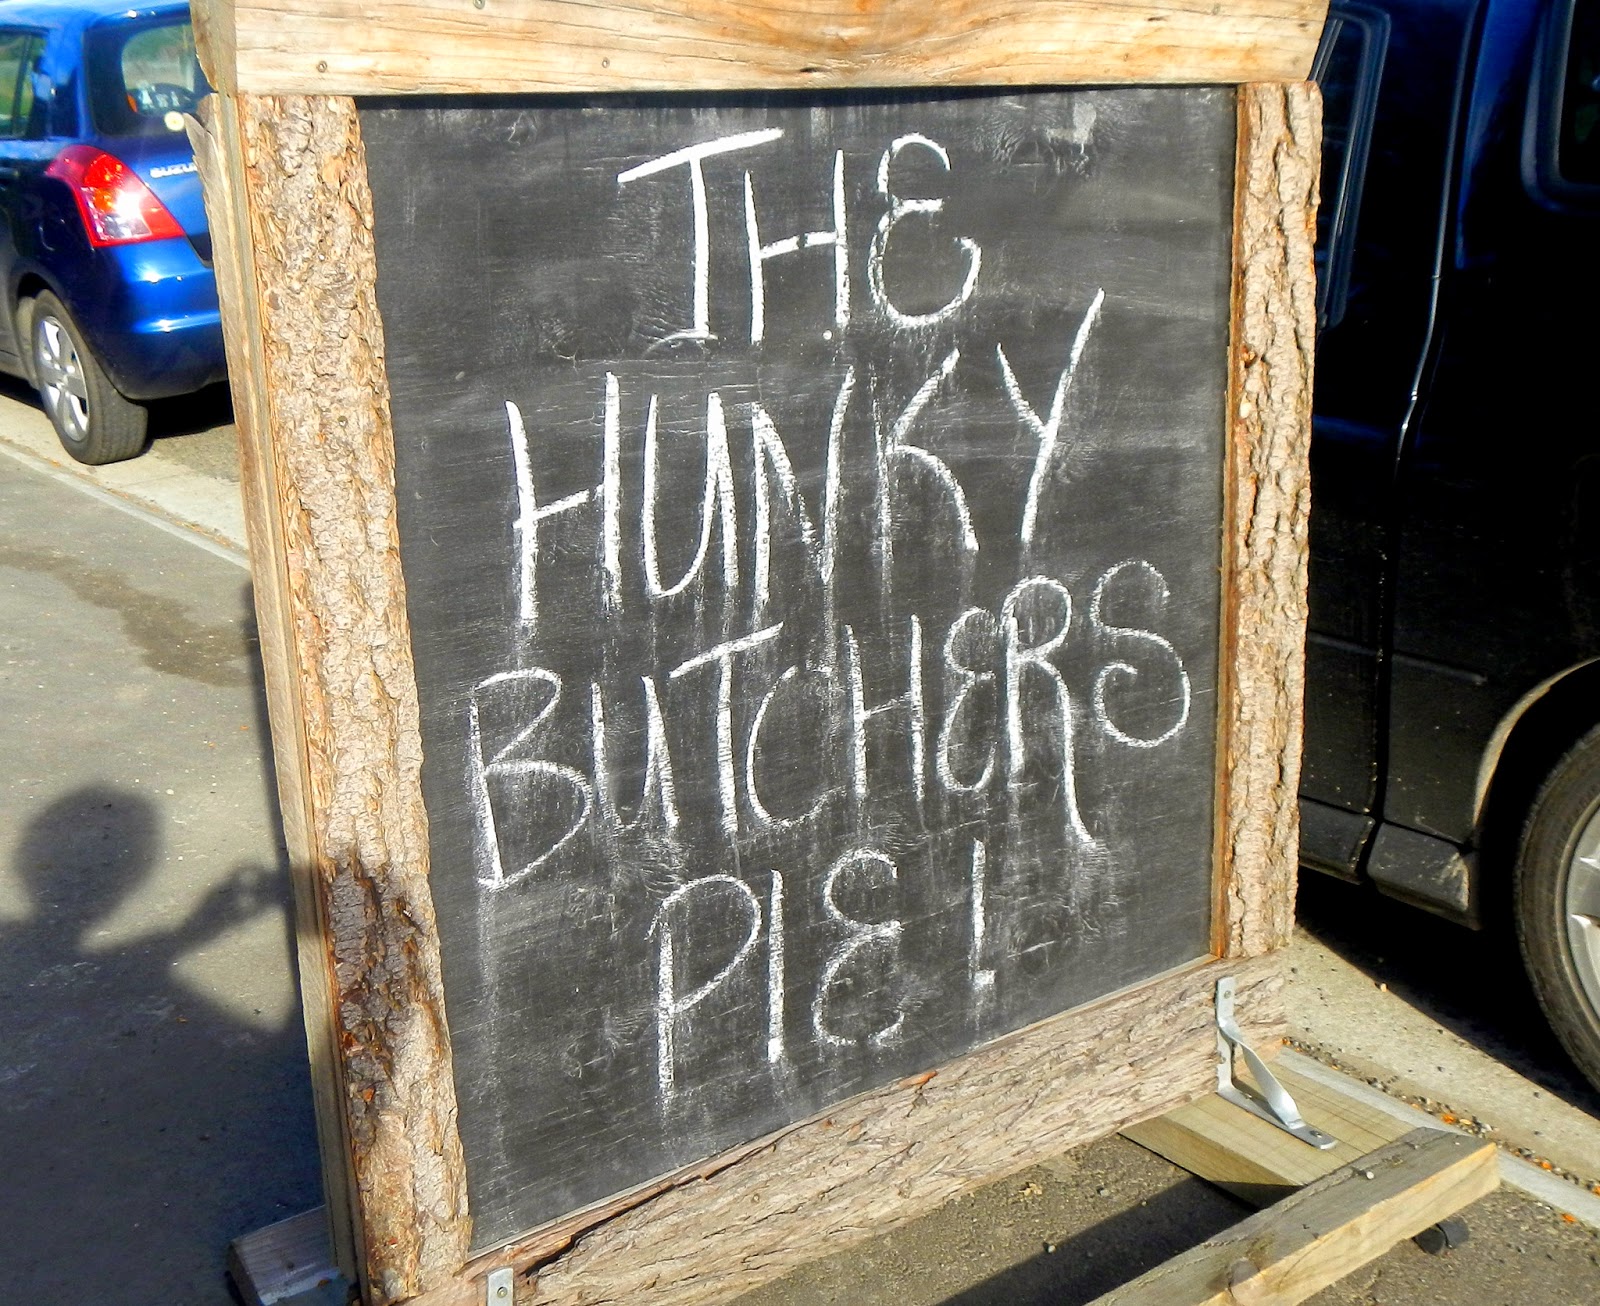 THE
HUNKY
BUTCHERS
PIE!
SUZUKI